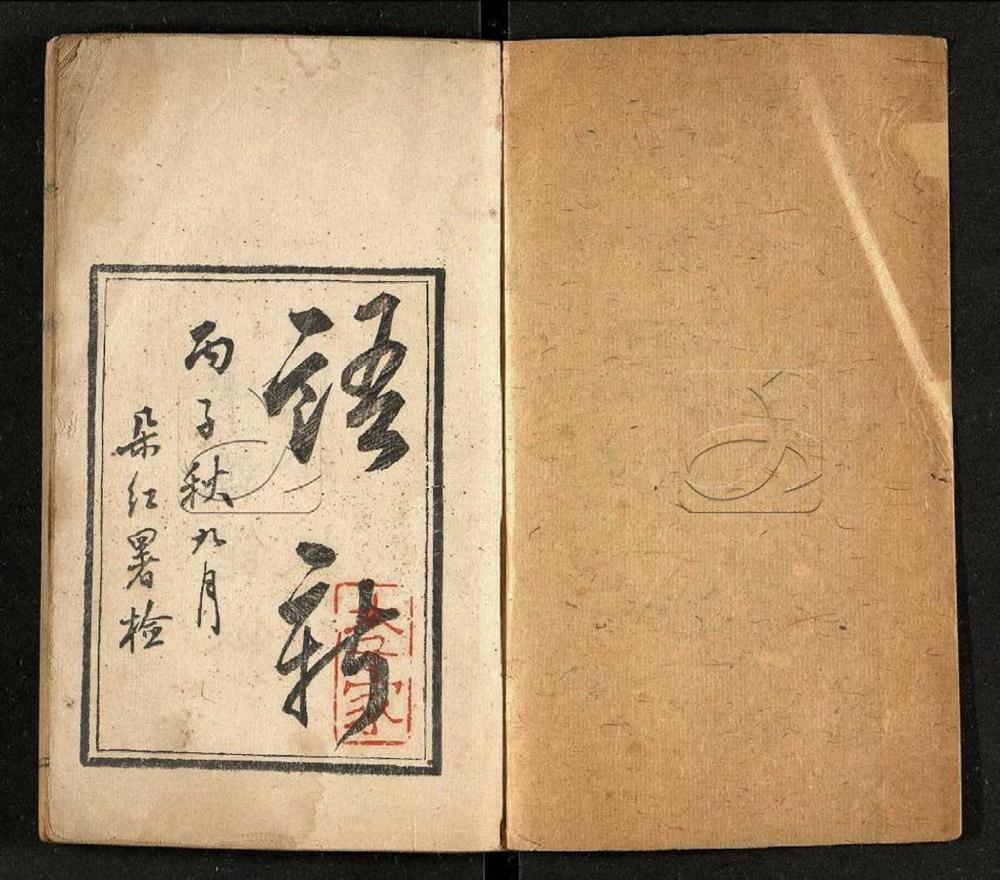 語新
丙子秋九月
朵紅署檢